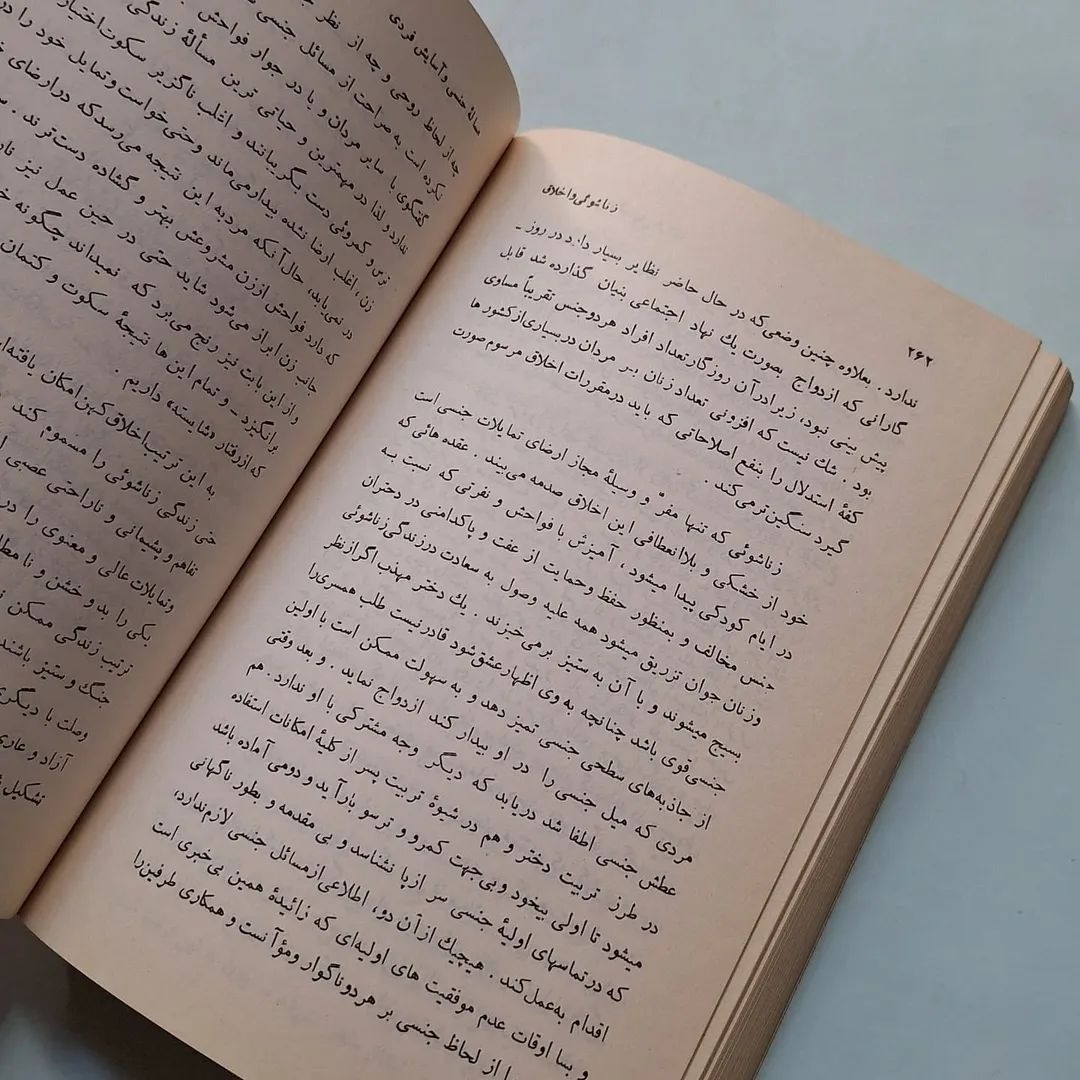 ۲۶۲
زناشوئی و اخلاق
ندارد . بعلاوه چنین وضعی که در حال حاضر نظایر بسیار دارد در روز ـ
گارانی که ازدواج بصورت یك نهاد اجتماعی بنیان گذارده شد قابل
پیش بینی نبود، زیرا در آن روزگار تعداد افراد هر دو جنس تقریباً مساوی
بود . شك نیست که افزونی تعداد زنان بر مردان در بسیاری از کشور ها
کفهٔ استدلال را بنفع اصلاحاتی که باید در مقررات اخلاق مرسوم صورت
گیرد سنگین‌تر می کند .
زناشوئی که تنها مفرّ و وسیلهٔ مجاز ارضای تمایلات جنسی است
خود از خشکی و بلاانعطافی این اخلاق صدمه می‌بیند . عقده هائی که
در ایام کودکی پیدا میشود ، آمیزش با فواحش و نفرتی که نسبت به
جنس مخالف و بمنظور حفظ و حمایت از عفت و پاکدامنی در دختران
وزنان جوان تزریق میشود همه علیه وصول به سعادت در زندگی زناشوئی
بسیج میشوند و با آن به ستیز برمی‌خیزند . یك دختر مهذب اگر از نظر
جنسی قوی باشد چنانچه به وی اظهار عشق شود قادر نیست طلب همسری را
از جاذبه‌های سطحی جنسی تمیز دهد و به سهولت ممکن است با اولین
مردی که میل جنسی را در او بیدار کند ازدواج نماید . و بعد وقتی
عطش جنسی اطفا شد دریابد که دیگر وجه مشترکی با او ندارد . هم
در طرز تربیت دختر و هم در شیوهٔ تربیت پسر از کلیهٔ امکانات استفاده
میشود تا اولی بیخود و بی‌جهت کمرو و ترسو بارآید و دومی آماده باشد
که در تماسهای اولیهٔ جنسی سر از پا نشناسد و بی مقدمه و بطور ناگهانی
اقدام به‌عمل کند . هیچیك از آن دو، اطلاعی از مسائل جنسی لازم ندارد،
و بسا اوقات عدم موفقیت های اولیه‌ای که زائیدهٔ همین بی خبری است
را از لحاظ جنسی بر هر دو ناگوار و مؤآ نست و همکاری طرفین را
مسألهٔ جنسی و آسایش فردی
چه از لحاظ روحی و چه از نظر
نکرده است به صراحت از مسائل جنسی
گفتگوی با سایر مردان و یا در جوار فواحش
ندارد و لذا در مهمترین و حیاتی ترین مسألهٔ زندگی
ترس و کمروئی دست بگریبانند و اغلب ناگزیر سکوت اختیار
زن ، اغلب ارضا نشده بیدار می‌ماند و حتی خواست و تمایل خود را در
در نمی‌یابد، حال آنکه مرد به این نتیجه می‌رسد که در ارضای
که دارد فواحش از زن مشروعش بهتر و گشاده دست‌ترند .
جانب زن ابراز می‌شود شاید حتی در حین عمل نیز
و از این بابت نیز رنج می‌برد که نمیداند چگونه
برانگیزد ـ و تمام این ها نتیجهٔ سکوت و کتمان
که از رفتار «شایسته» داریم .
به این ترتیب اخلاق کهن امکان یافته
حتی زندگی زناشوئی را مسموم کند
تفاهم و پشیمانی و ناراحتی عصبی
وتمایلات عالی و معنوی را در
یکی را بد و خشن و نا
ترتیب زندگی ممکن
جنگ و ستیز باشند
وصلت با دیگری
آزاد و عاری
تشکیل